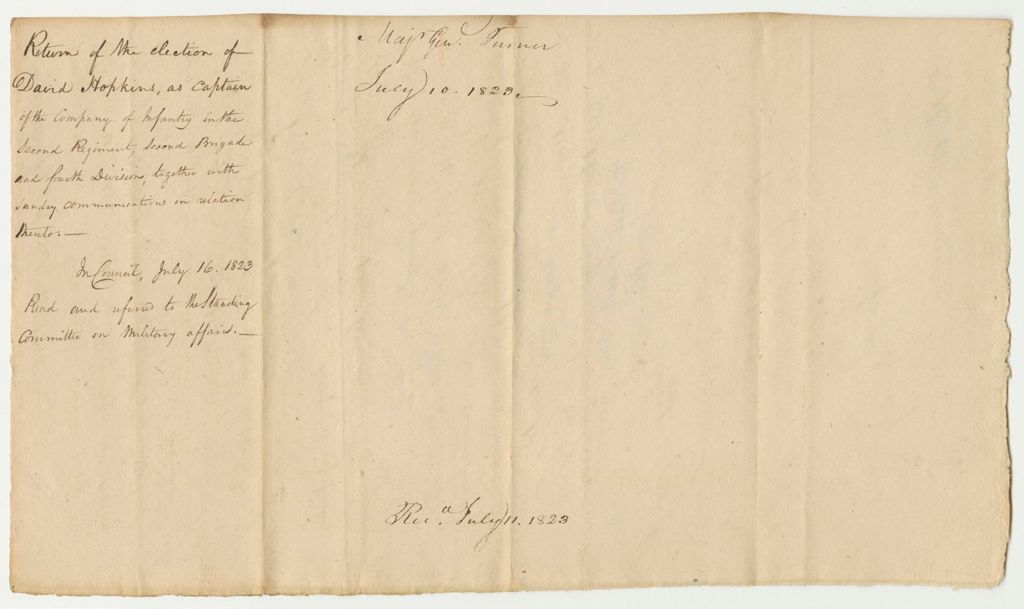 Return of the election of
David Hopkins, as Captain
of the Company of Infantry in the
Second Regiment, Second Brigade
and fourth Division, together with
sundry communications in relation
thereto:—
In Council, July 16. 1823
Read and referred to the Standing
Committee on Military affairs.—
Majr Gen. Turner
July 10. 1823.
Recd July 11. 1823